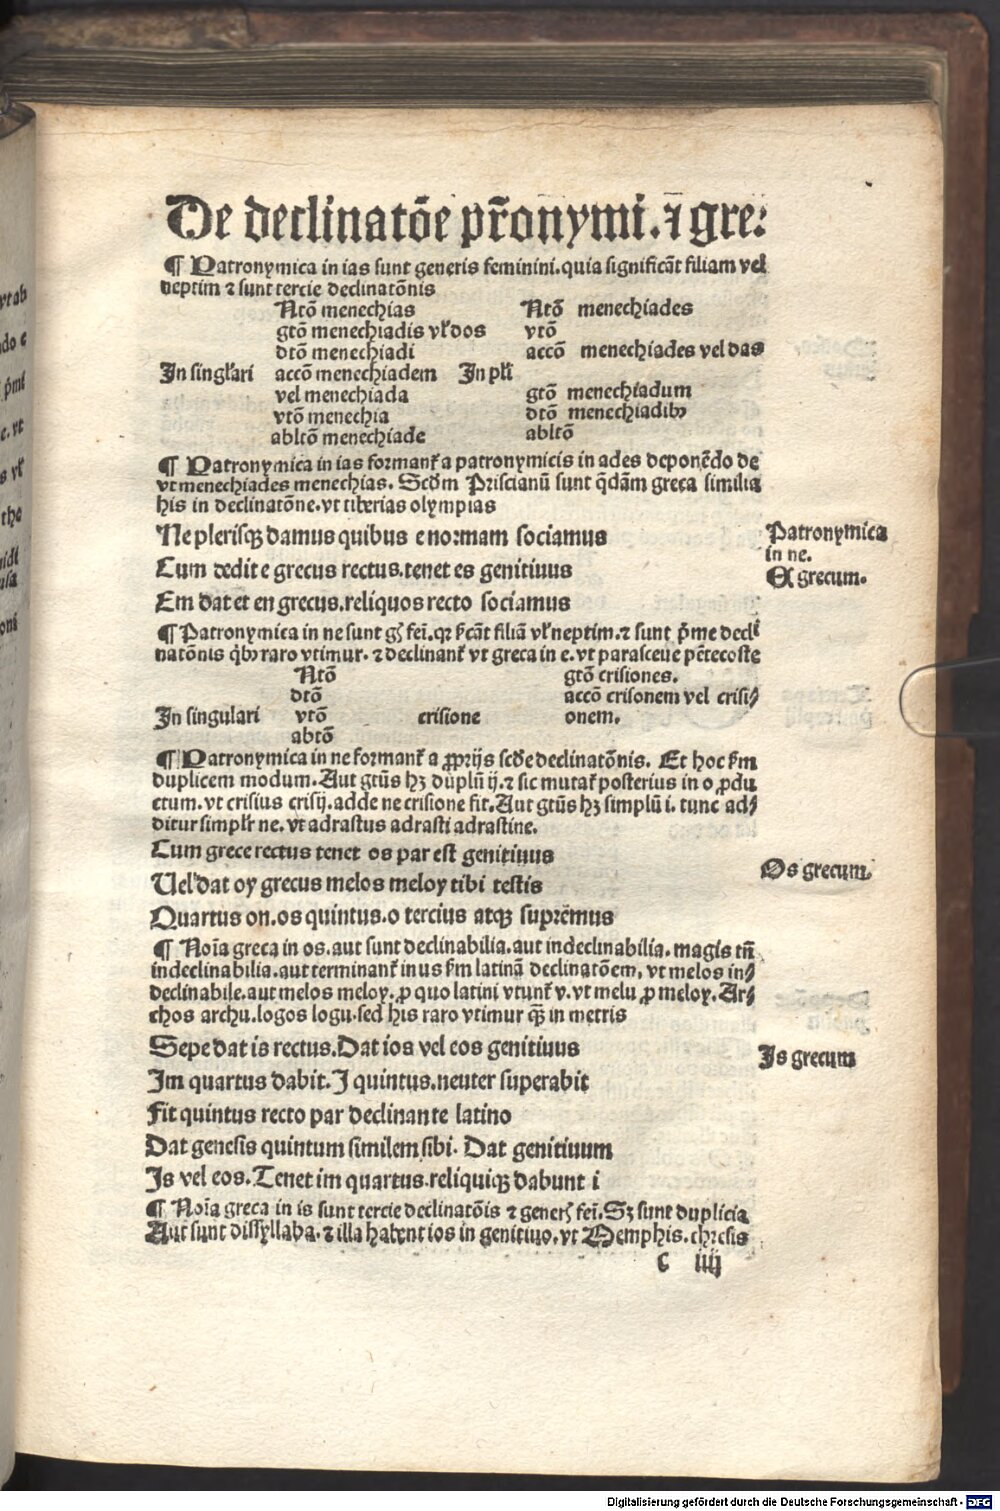 De declinatōe pr̄onymi. ⁊ gre:
¶ Patronymica in ias sunt generis feminini. quia significāt filiam vel
neptim ⁊ sunt tercie declinatōnis
Ntō menechias Ntō menechiades
gtō menechiadis vl' dos vtō
dtō menechiadi accō menechiades vel das
In singl'ari accō menechiadem In pl'i
vel menechiada gtō menechiadum
vtō menechia dtō menechiadibꝫ
abltō menechiade abltō
¶ Patronymica in ias formant̄ a patronymicis in ades deponēdo de
vt menechiades menechias. Scd'm Priscianū sunt q̄dām greca similia
his in declinatōne. vt tiberias olympias
Ne plerisqꝫ damus quibus e normam sociamus
Cum dedit e grecus rectus. tenet es genitiuus
Em dat et en grecus. reliquos recto sociamus
Patronymica
in ne.
Ex grecum.
¶ Patronymica in ne sunt gn̄s fei. qꝛ sc̄āt filiā vl' neptim. ⁊ sunt p̄me decl'i
natōnis qꝫ raro vtimur. ⁊ declinant̄ vt greca in e. vt parasceue pētecoste
Ntō gtō crisiones.
dtō accō crisonem vel crisi⸗
In singulari vtō crisione onem.
abtō
¶ Patronymica in ne formant̄ a ꝓprijs scd'e declinatōnis. Et hoc s'm
duplicem modum. Aut gtūs hꝫ duplū ij. ⁊ sic mutat̄ posterius in o ꝓdu
ctum. vt crisius crisij. adde ne crisione fit. Aut gtūs hꝫ simplū i. tunc ad⸗
ditur simpl'r ne. vt adrastus adrasti adrastine.
Cum grece rectus tenet os par est genitiuus
Uel dat oy grecus melos meloy tibi testis
Quartus on. os quintus. o tercius atqꝫ suprēmus
Os grecum.
¶ Noīa greca in os. aut sunt declinabilia. aut indeclinabilia. magis tn̄
indeclinabilia. aut terminant̄ in us s'm latinā declinatōem, vt melos in⸗
declinabile. aut melos meloy. ꝓ quo latini vtunt̄ v. vt melu ꝓ meloy. Ar⸗
chos archu. logos logu. sed his raro vtimur qꝫ in metris
Sepe dat is rectus. Dat ios vel eos genitiuus
Im quartus dabit. I quintus. neuter superabit
Fit quintus recto par declinante latino
Dat genesis quintum similem sibi. Dat genitiuum
Is vel eos. Tenet im quartus. reliquiqꝫ dabunt i
Is grecum
¶ Noīa greca in is sunt tercie declinatōis ⁊ gener̄ fei. Sꝫ sunt duplicia
Aut sunt dissyllaba. ⁊ illa habent ios in genitiuo. vt Memphis. chresis
c iiij
Digitalisierung gefördert durch die Deutsche Forschungsgemeinschaft - DFG